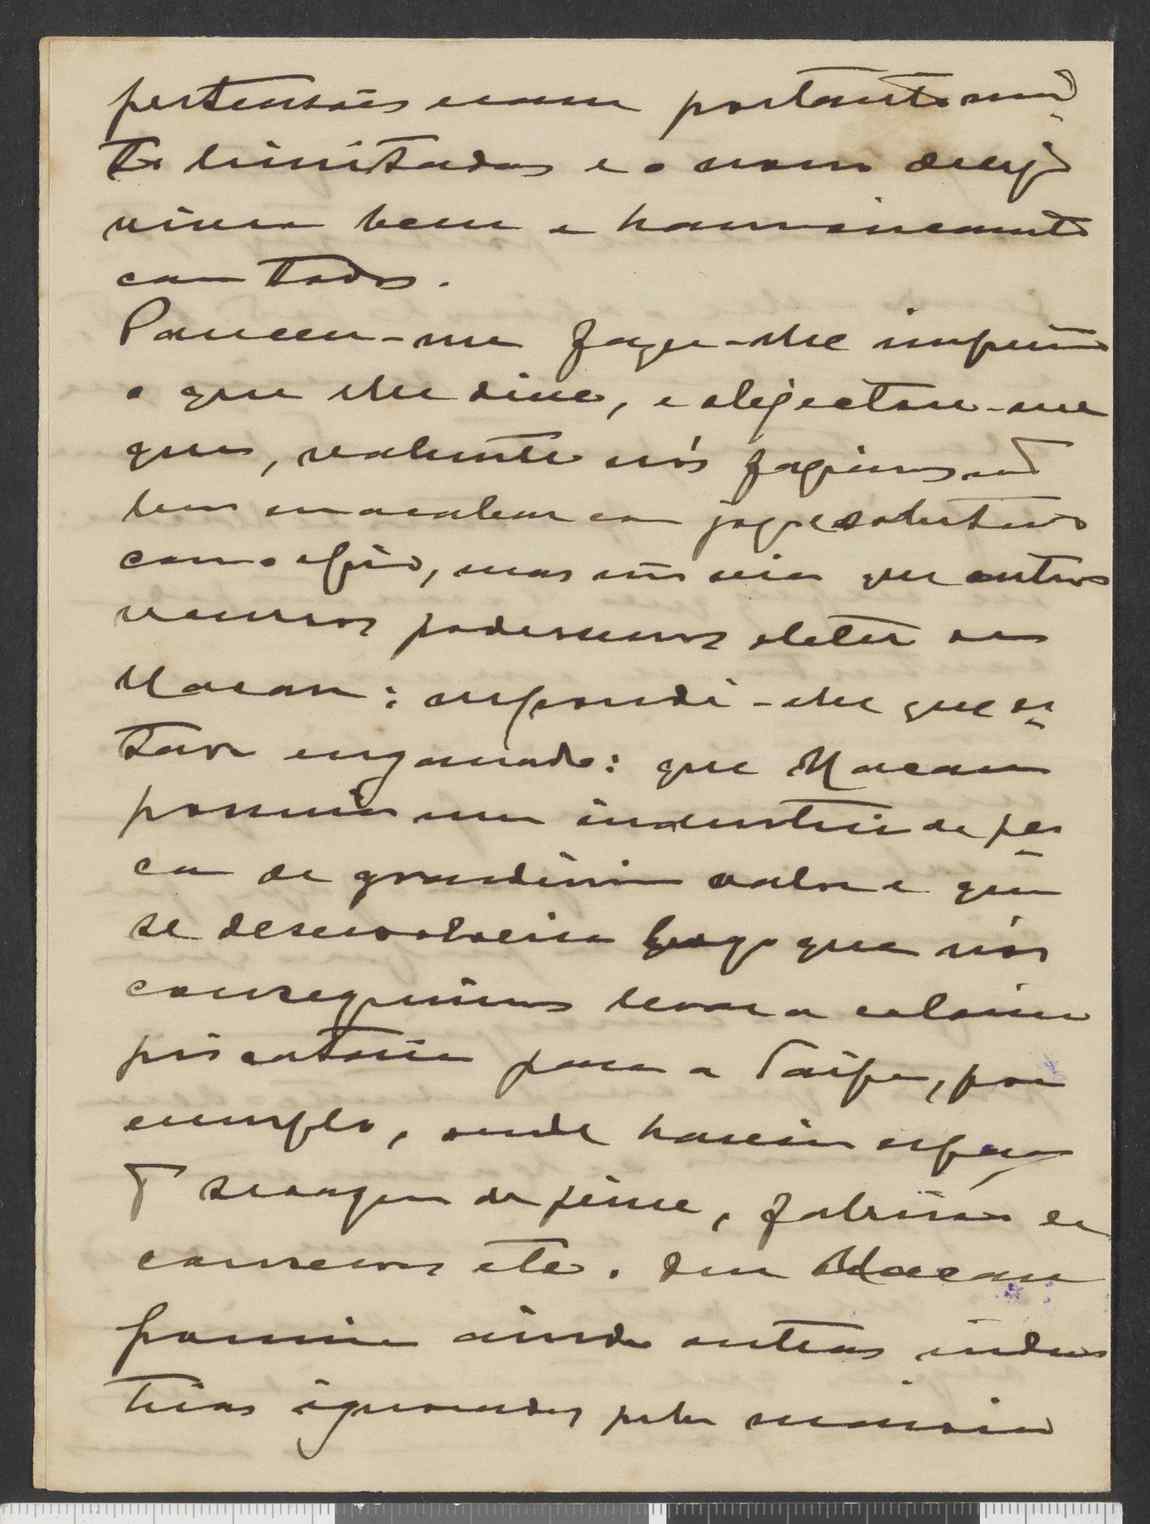 pertensões eram portanto mui
to limitadas e o nosso desejo
viver bem e harmonicamente
com todos.
Pareceu-me fazer-lhe impressão
o que lhe disse, e objectou-me
que, realmente nós faziamos
bem em acabar com jogo e sobretudo
com o opio, mas não via que outros
recursos podessemos obter em
Macau: respondi-lhe que es
tava enganado: que Macau
possuia uma industria de pes
ca de grandissimo valor e que
se desenvolveria logo que nós
conseguissemos levar a colonia
piscatoria para a Taipa, por
exemplo, onde haveria espaço
pª seccagem de peixe, fabricas de
conservas etc. Que Macau
possuia ainda outras indus
trias ignoradas pela maioria